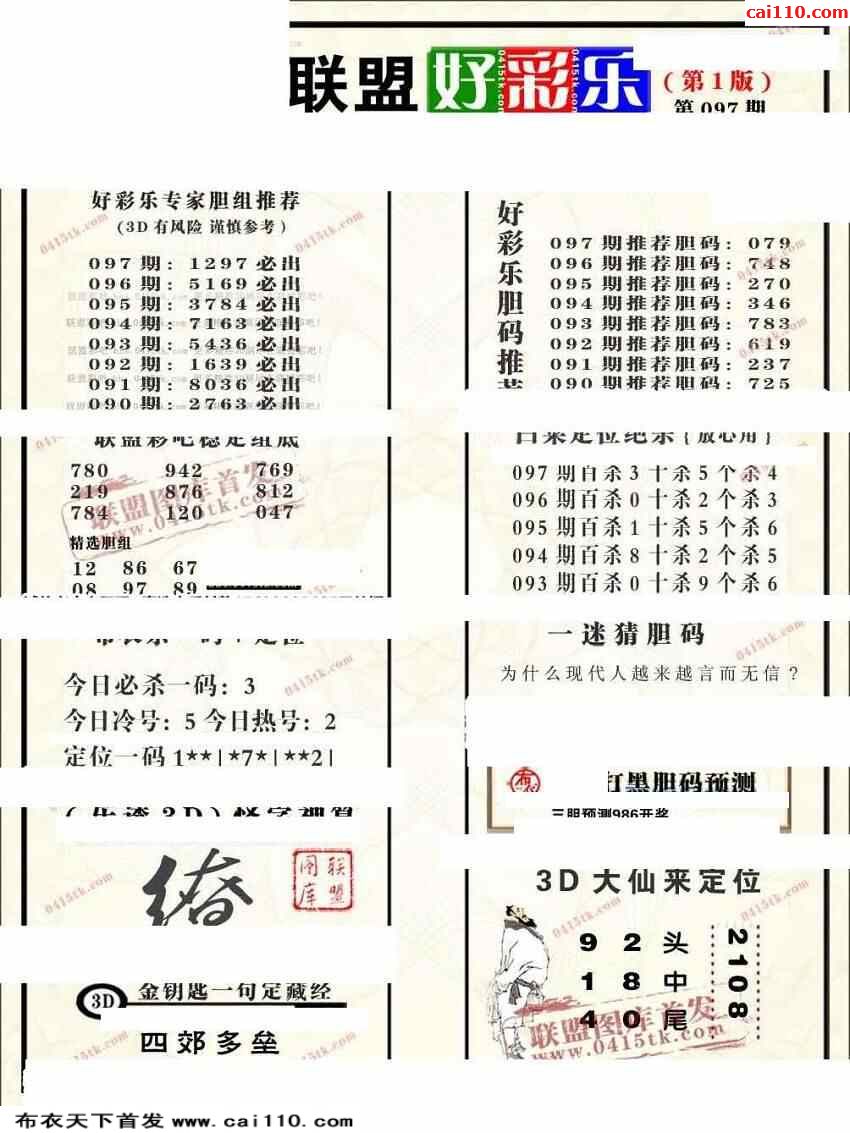 cai110.com
联盟好彩乐
(第1版)
第097期
好彩乐专家胆组推荐
(3D有风险 谨慎参考)
097期: 1297必出
096期: 5169必出
095期: 3784必出
094期: 7163必出
093期: 5436必出
092期: 1639必出
091期: 8036必出
090期: 2763必出
好彩乐胆码推荐
097期推荐胆码: 079
096期推荐胆码: 748
095期推荐胆码: 270
094期推荐胆码: 346
093期推荐胆码: 783
092期推荐胆码: 619
091期推荐胆码: 237
090期推荐胆码: 725
联盟彩吧稳定组底
780 942 769
219 876 812
784 120 047
精选胆组
12 86 67
08 97 89
白菜定位绝杀{放心用}
097期百杀3十杀5个杀4
096期百杀0十杀2个杀3
095期百杀1十杀5个杀6
094期百杀8十杀2个杀5
093期百杀0十杀9个杀6
今日必杀一码: 3
今日冷号: 5 今日热号: 2
定位一码 1**|*7*|**2|
一迷猜胆码
为什么现代人越来越言而无信?
胆码预测
三胆预测986开奖
联盟图库
3D
金钥匙一句定藏经
四郊多垒
3D大仙来定位
9 2 头
1 8 中
4 0 尾
2108
联盟图库首发
www.0415tk.com
布衣天下首发 www.cai110.com